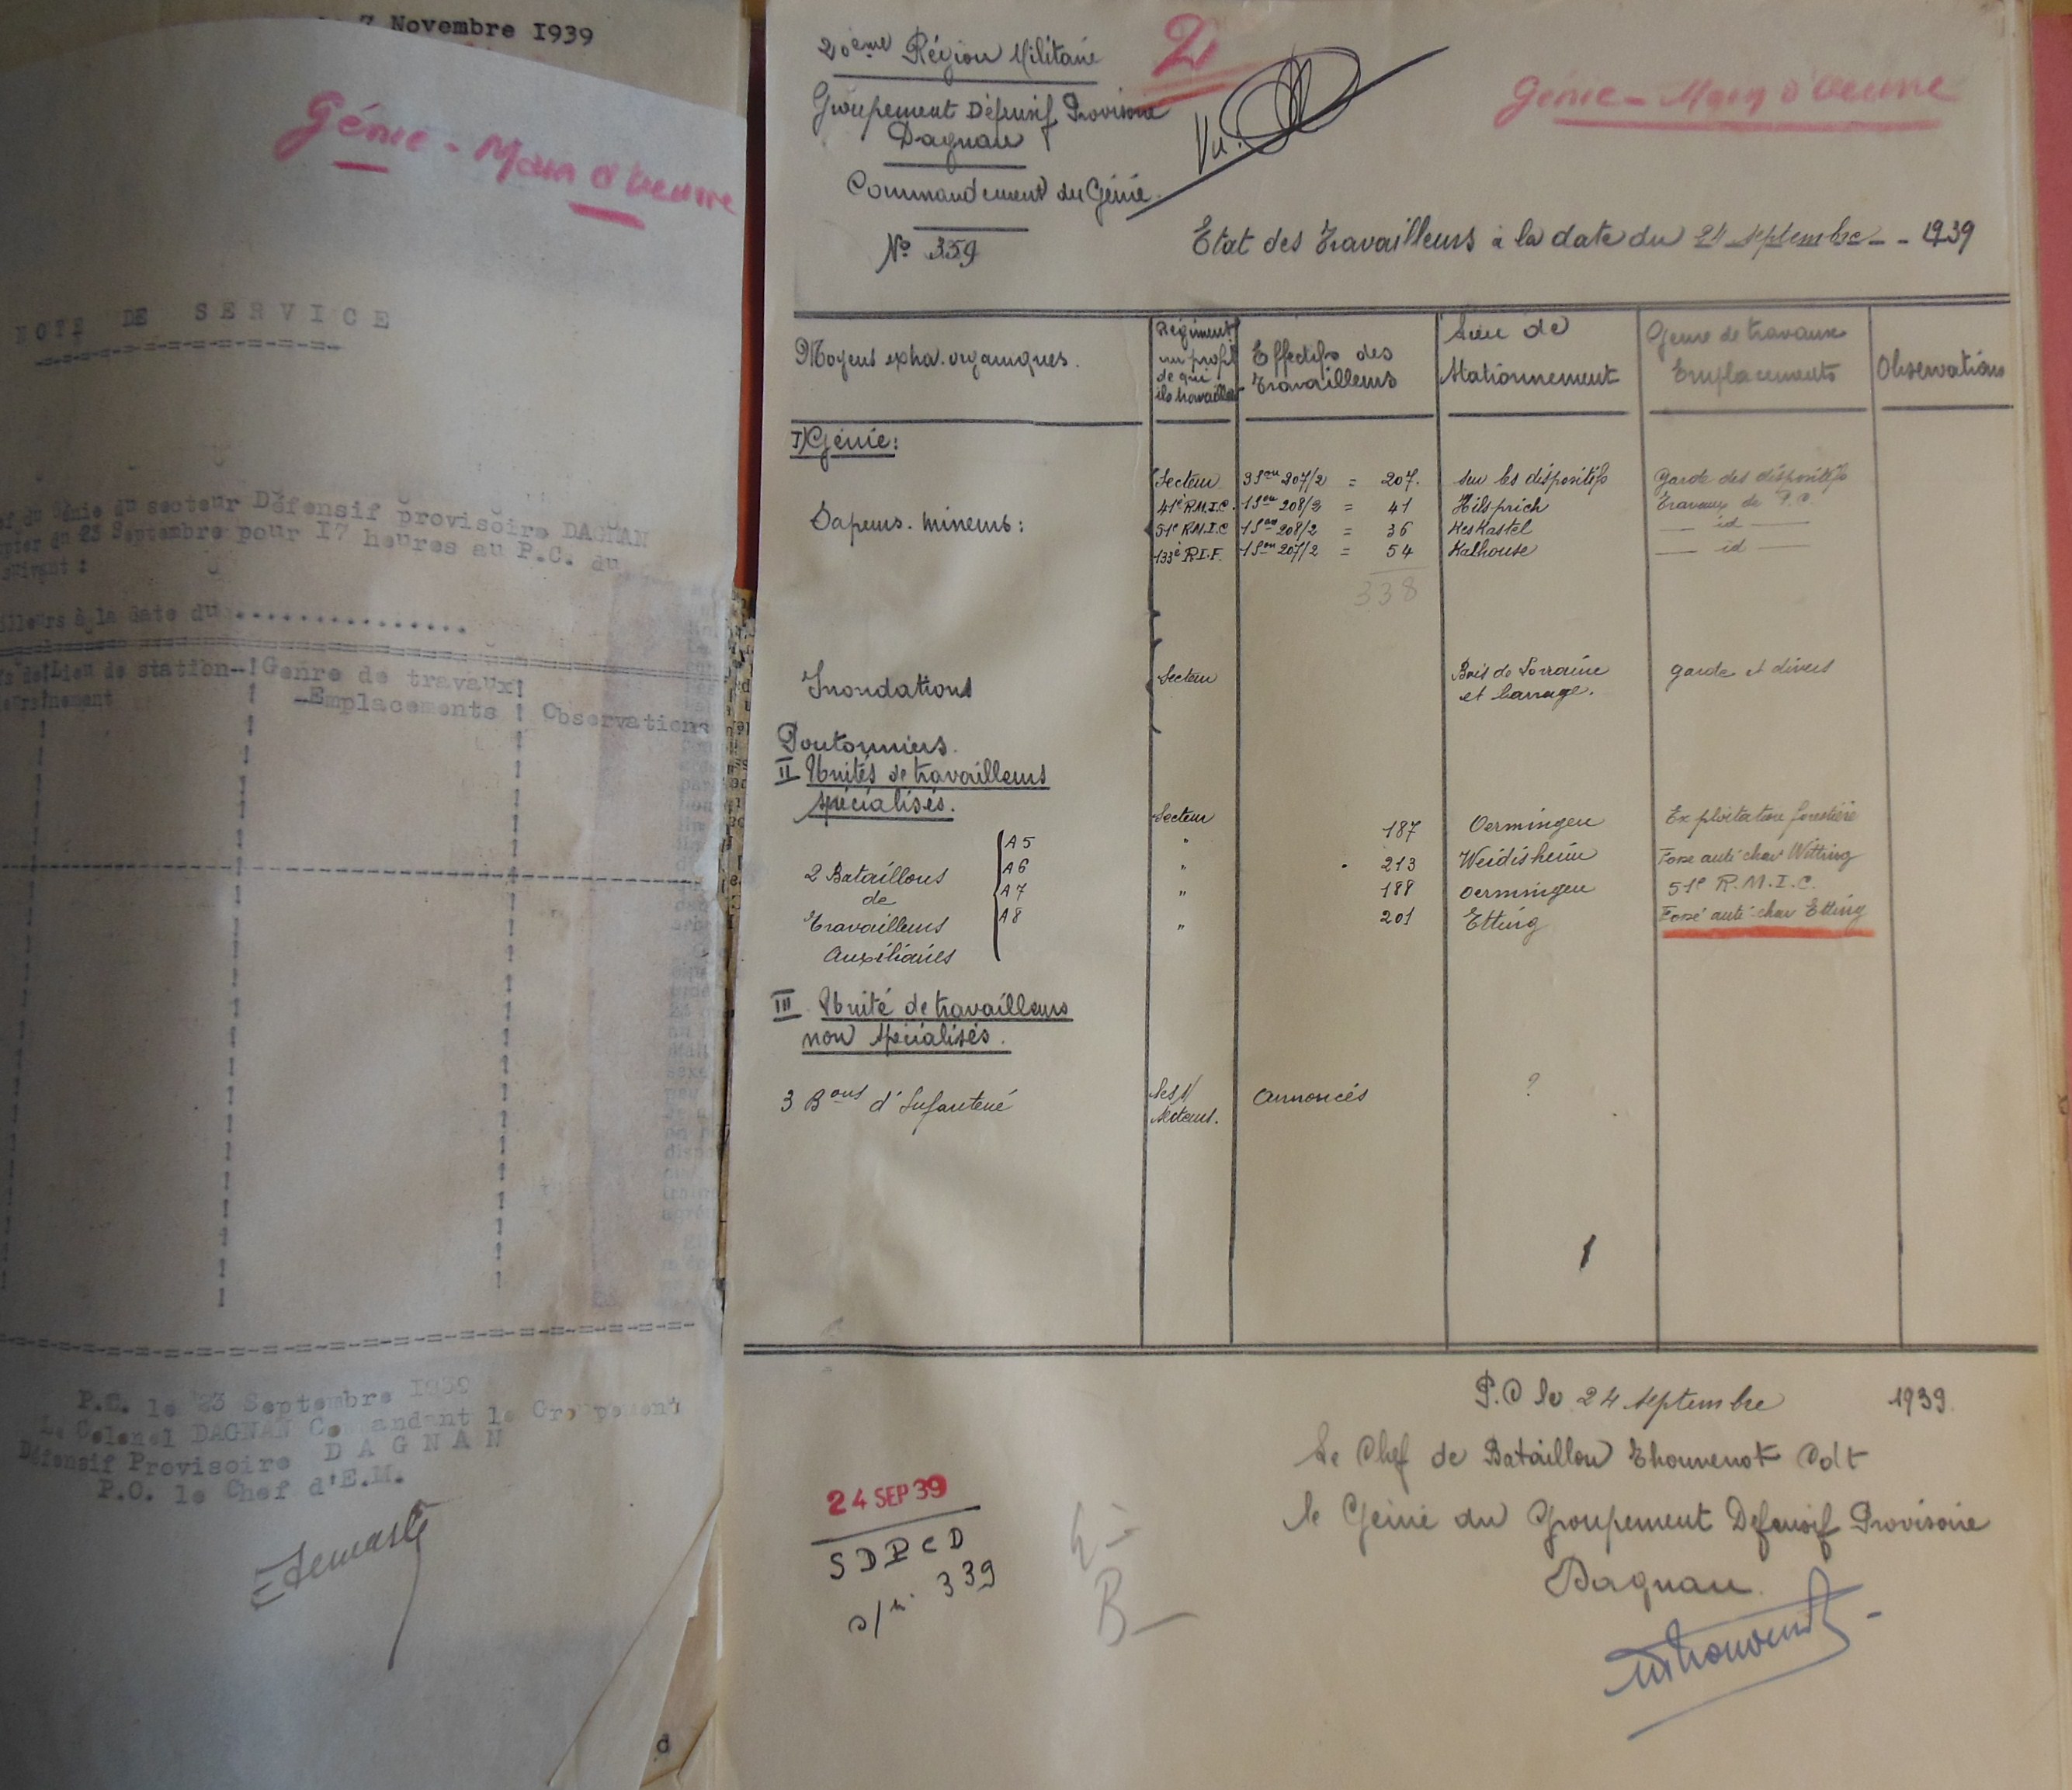 7 Novembre 1939
Génie - Main d'Oeuvre
NOTE DE SERVICE
du Génie du secteur Défensif provisoire DAGNAN
du 23 Septembre pour 17 heures au P.C. du
suivant :
à la date du ...............
Lieu de station- ! Genre de travaux !
Emplacements ! Observations
P.C. le 23 Septembre 1939
Le Colonel DAGNAN Commandant le Groupement
Défensif Provisoire D A G N A N
P.O. le Chef d'E.M.
20ème Région Militaire
2
Groupement Défensif Provisoire
Dagnan
Vu.
Génie - Main d'Oeuvre
Commandement du Génie.
N° 359
Etat des Travailleurs à la date du 24 septembre - - 1939
Moyens extra. organiques.
Régiment au profit de qui ils travaillent
Effectifs des Travailleurs
Lieu de Stationnement
Genre de travaux Emplacements
Observations
I) Génie:
Sapeurs. mineurs:
Secteur 3 Son 207/2 = 207. sur les dispositifs Garde des dispositifs
41e R.M.I.C. 1 Son 208/3 = 41 Hilsprich Travaux de P.C.
51e R.M.I.C 1 Son 208/2 = 36 Keskastel — id —
133e R.I.F. 1 Son 207/2 = 54 Kalhouse — id —
338
Inondations Secteur Bois de Lorraine et barrage. garde et divers
Pontonniers.
II Unités de travailleurs
spécialisés.
2 Bataillons
de
Travailleurs
Auxiliaires
A5 Secteur 187 Oermingen Exploitation forestière
A6 " 213 Weidisheim Fossé anti char Wittring
A7 " 188 Oermingen 51e R.M.I.C.
A8 " 201 Etting Fossé anti-char Etting
III Unité de travailleurs
non spécialisés.
3 Bons d'Infanterie Les s/ secteurs. annoncés ?
P.C le 24 septembre 1939.
Le Chef de Bataillon Thouvenot Cdt
le Génie du Groupement Défensif Provisoire
Dagnan.
24 SEP 39
SDPCD
339
B